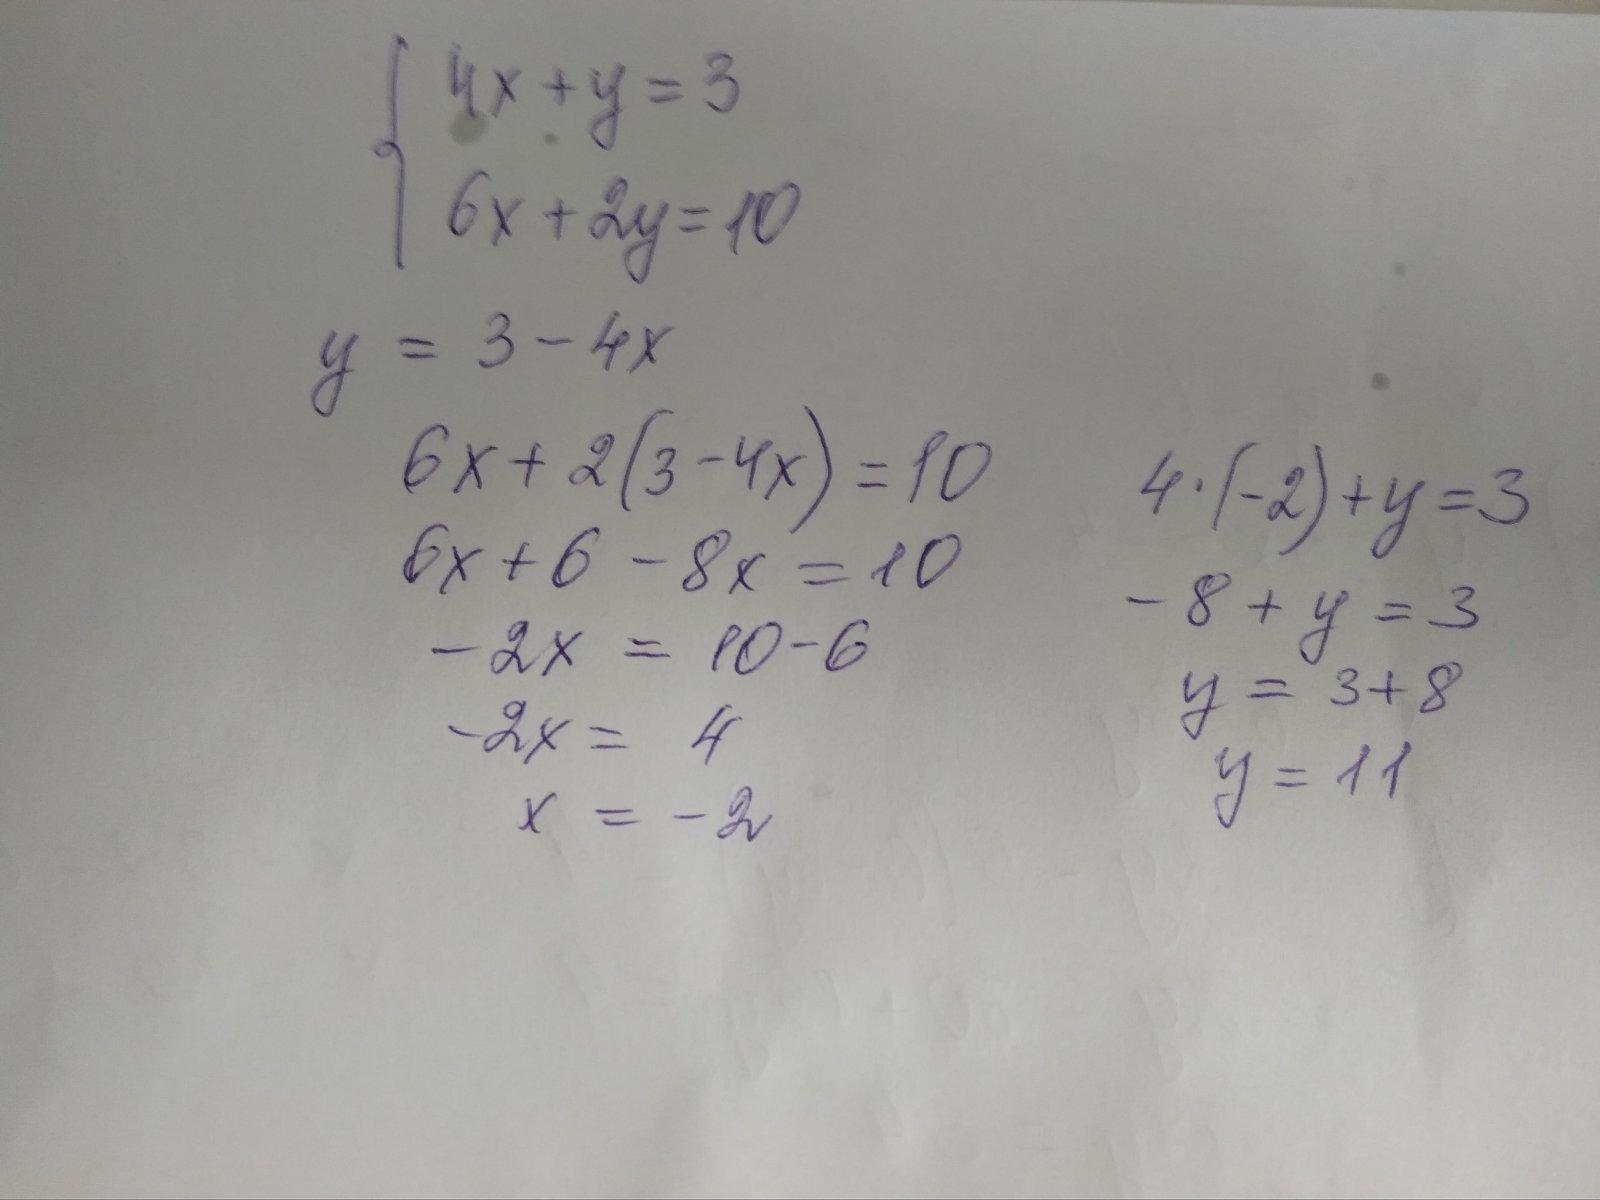 4x + y = 3
6x + 2y = 10
y = 3 - 4x
6x + 2(3 - 4x) = 10
6x + 6 - 8x = 10
-2x = 10 - 6
-2x = 4
x = -2
4 · (-2) + y = 3
-8 + y = 3
y = 3 + 8
y = 11